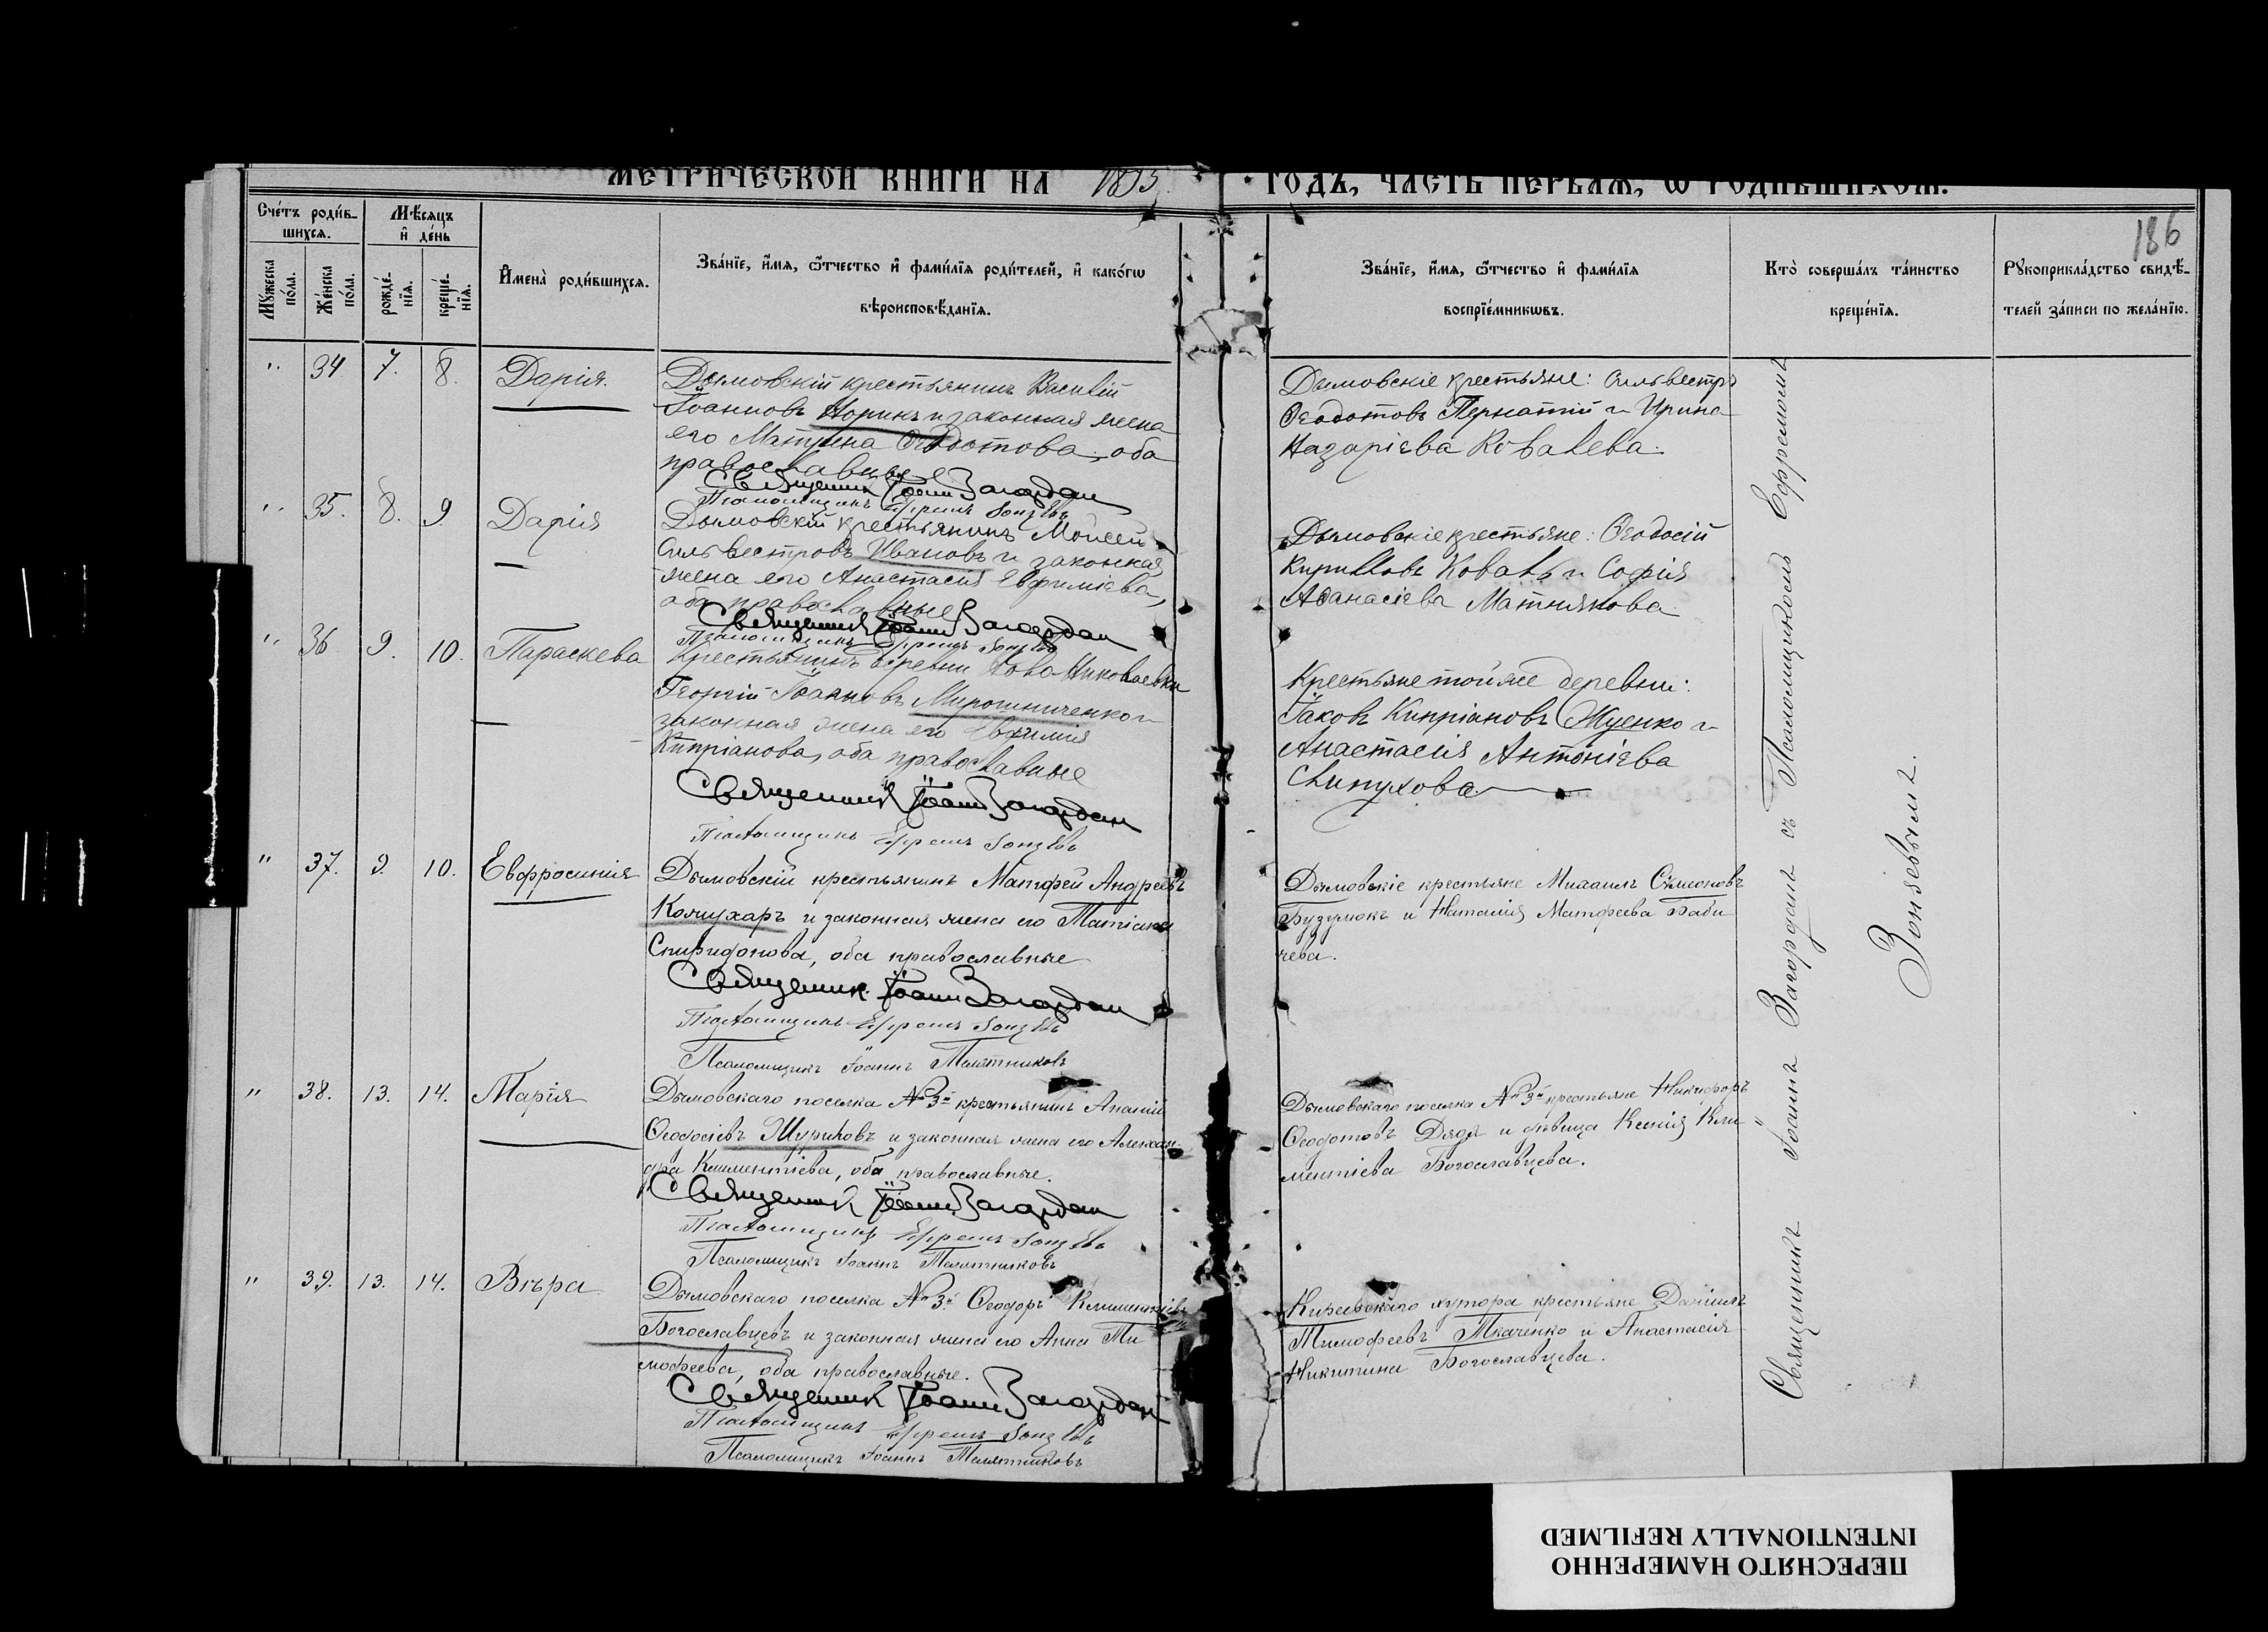 МЕТРИЧЕСКОЙ КНИГИ НА 1895 ГОДЪ, ЧАСТЬ ПЕРВАЯ, Ѡ РОДИВШИХСЯ.
186
Сче́тъ роди́в-
шихся.
Мѣ́сяцъ
и҆ де́нь
Мꙋжеска
по́ла.
Же́нска
по́ла.
рожде́-
нїя.
креще́-
нїя.
И҆мена̀ роди́вшихся.
Зва́нїе, и҆́мя, ѻ҆́тчество и҆ фами́лїя роди́телей, и҆ како́гѡ
вѣроисповѣ́данїя.
Зва́нїе, и҆́мя, ѻ҆́тчество и҆ фами́лїя
воспрїе́мникѡвъ.
Кто̀ соверша́лъ та́инство
креще́нїя.
Рꙋкоприкла́дство свидѣ́-
телей за́писи по жела́нїю.
" 34 7. 8. Дарія.
Дымовскій крестьянинъ Василій
Іоанновъ Норикъ и законная жена
его Матрина Ѳеодотова, оба
православные
Священник Іоанн Загордан
Псаломщикъ Ефремъ Зонзевъ
Дымовскіе крестьяне: Сильвестръ
Ѳеодотовъ Пернатій и Ирина
Назаріева Ковалева.
" 35. 8. 9 Дарія
Дымовскій крестьянинъ Моисей
Сильвестровъ Ивановъ и законная
жена его Анастасія Евфиміева,
оба православные
Священник Іоанн Загордан
Псаломщикъ Ефремъ Зонзевъ
Дымовскіе крестьяне: Ѳеодосій
Кирилловъ Коваль и Софія
Аѳанасіева Матнякова
" 36 9. 10. Параскева
Крестьянинъ деревни Ново-Николаевки
Георгій Іоанновъ Мирошниченко и
законная жена его Евфимія
Кипріанова, оба православные
Священник Іоанн Загордан
Псаломщикъ Ефремъ Зонзевъ
Крестьяне той же деревни:
Іаковъ Кипріановъ Жуенко и
Анастасія Антоніева
" 37. 9. 10. Евфросинія
Дымовскій крестьянинъ Матфей Андреевъ
Кожухаръ и законная жена его Татіана
Спиридонова, оба православные
Священник Іоанн Загордан
Псаломщикъ Ефремъ Зонзевъ
Псаломщикъ Іоаннъ Телятниковъ
Дымовскіе крестьяне Михаилъ Симеоновъ
Бузумокъ и Наталія Матфеева Баби
чева.
" 38. 13. 14. Марія
Дымовскаго поселка № 3й крестьянинъ Ананій
Ѳеодосіевъ Шуриковъ и законная жена его Алексан-
дра Климентіева, оба православные.
Священник Іоанн Загордан
Псаломщикъ Ефремъ Зонзевъ
Псаломщикъ Іоаннъ Телятниковъ
Дымовскаго поселка № 3й крестьяне Никифоръ
Ѳеодотовъ Дядя и дѣвица Ксенія Кли
ментіева Богославцева.
" 39. 13. 14. Вѣра
Дымовскаго поселка № 3й Ѳеодоръ Климентіевъ
Богославцевъ и законная жена его Анна Ти
мофеева, оба православные.
Священник Іоанн Загордан
Псаломщикъ Ефремъ Зонзевъ
Псаломщикъ Іоаннъ Телятниковъ
Киреевскаго хутора крестьяне Даніилъ
Тимофеевъ Ткаченко и Анастасія
Никитина Богославцева.
Священникъ Іоаннъ Загорданъ съ Псаломщикомъ Ефремомъ
Зонзевымъ.
ПЕРЕСНЯТО НАМЕРЕННО
INTENTIONALLY REFILMED